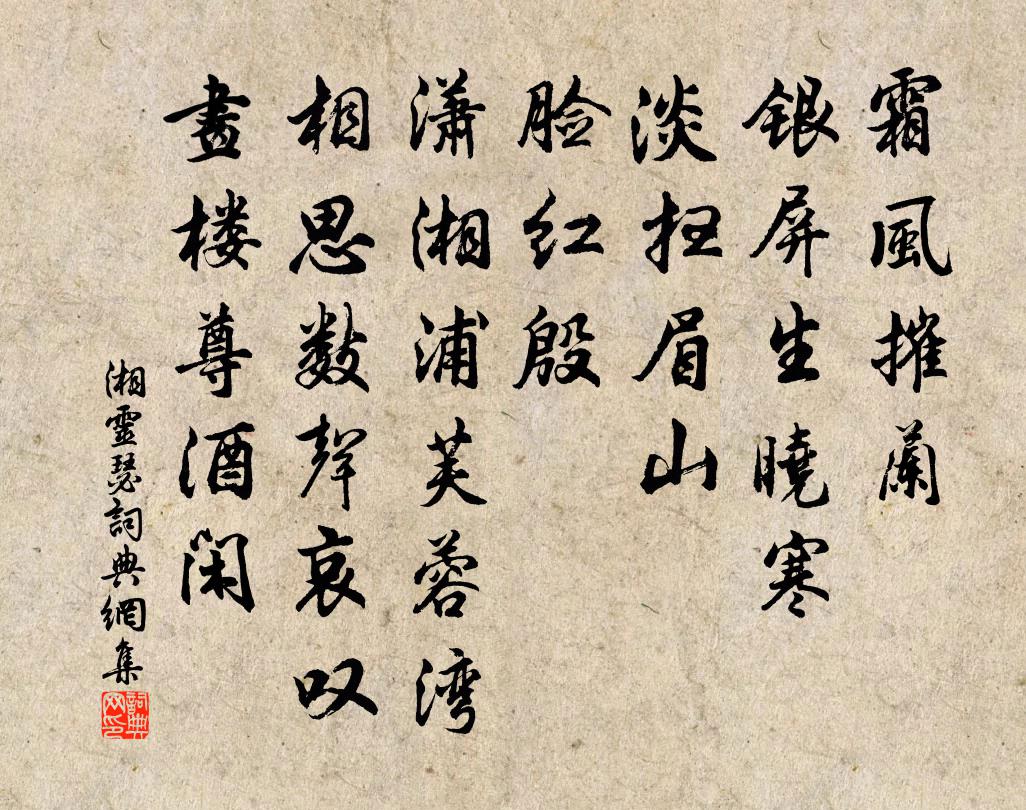 霜風摧蘭
银屏生曉寒
淡扫眉山
脸红殷
潇湘浦芙蓉湾
相思数聲哀叹
畫楼尊酒闲
湘靈瑟詞典網集
詞典网印